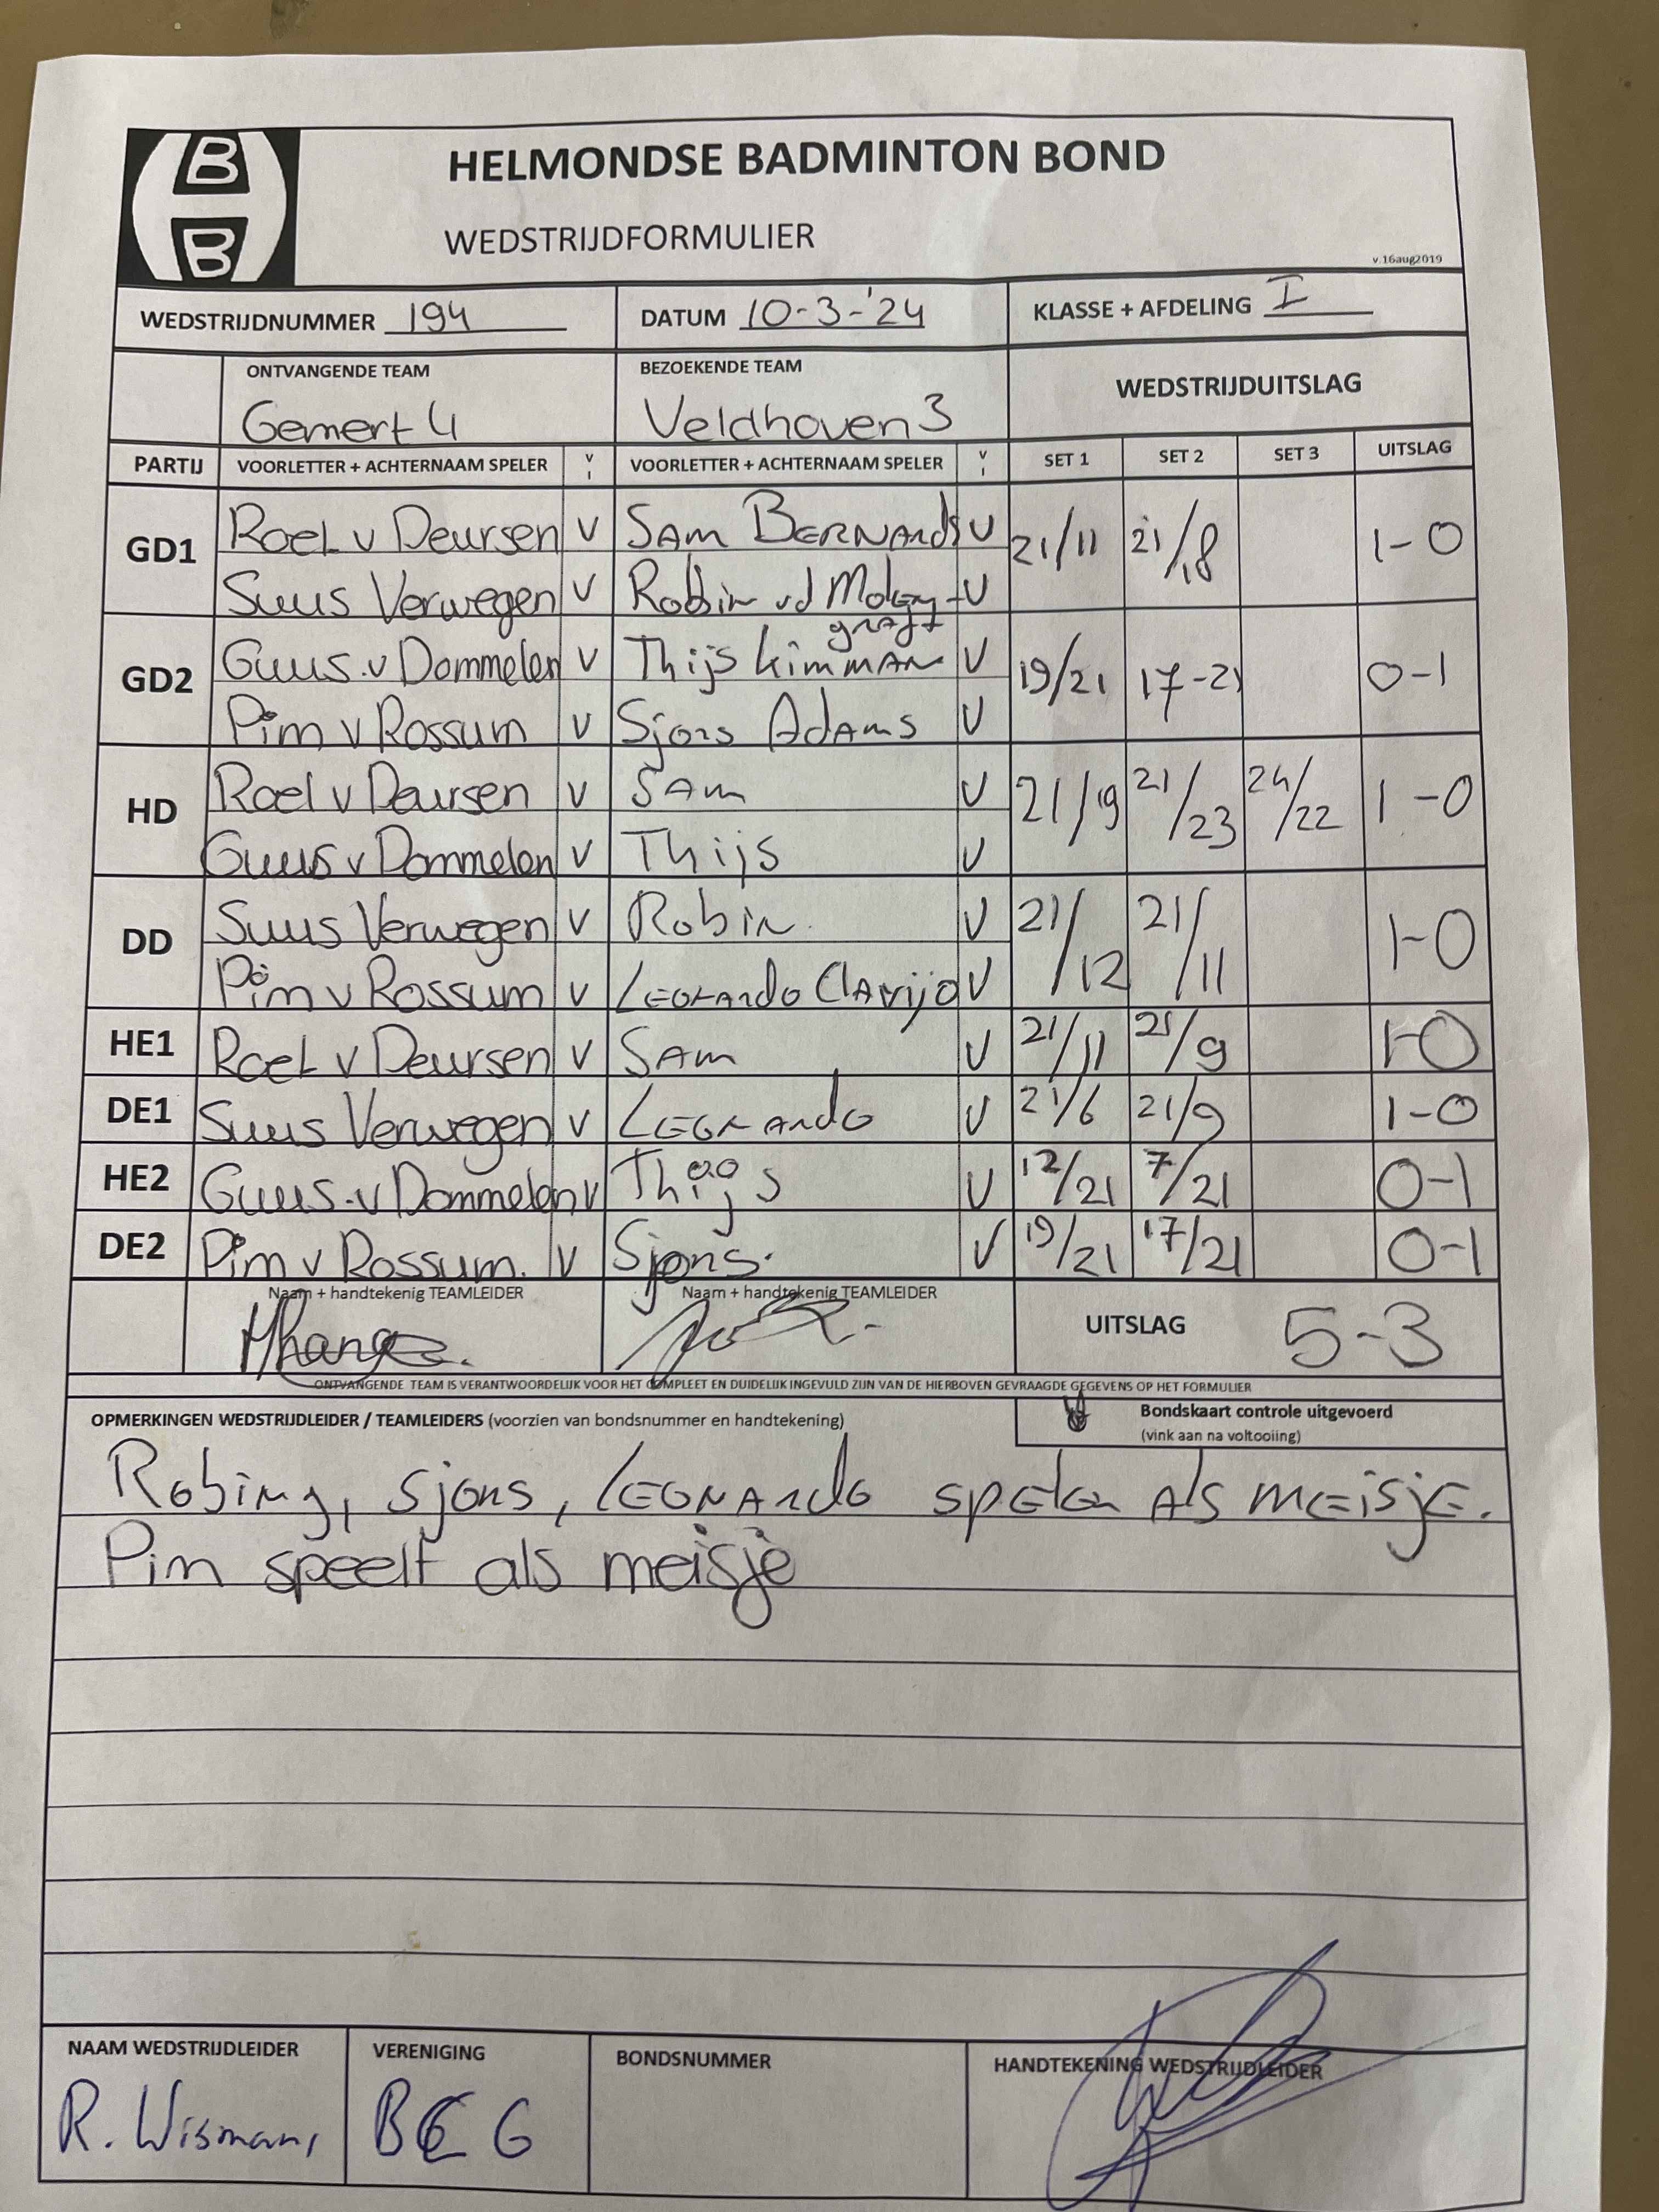 B
B
HELMONDSE BADMINTON BOND
WEDSTRIJDFORMULIER
v.16aug2019
WEDSTRIJDNUMMER 194 DATUM 10-3-'24 KLASSE + AFDELING I
ONTVANGENDE TEAM BEZOEKENDE TEAM WEDSTRIJDUITSLAG
Gemert 4 Veldhoven 3
PARTIJ VOORLETTER + ACHTERNAAM SPELER V I VOORLETTER + ACHTERNAAM SPELER V I SET 1 SET 2 SET 3 UITSLAG
GD1 Roel v Deursen V Sam Bernards V 21/11 21/18 1-0
Suus Verwegen V Robin vd Molen- V
graft
GD2 Guus v Dommelen V Thijs Kimman V 19/21 17-21 0-1
Pim v Rossum V Sjors Adams V
HD Roel v Deursen V Sam V 21/19 21/23 24/22 1-0
Guus v Dommelen V Thijs V
DD Suus Verwegen V Robin V 21/12 21/11 1-0
Pim v Rossum V Leonardo Clavijo V
HE1 Roel v Deursen V Sam V 21/11 21/9 1-0
DE1 Suus Verwegen V Leonardo V 21/6 21/9 1-0
HE2 Guus v Dommelen V Thijs V 12/21 7/21 0-1
DE2 Pim v Rossum. V Sjors. V 19/21 17/21 0-1
Naam + handtekenig TEAMLEIDER Naam + handtekenig TEAMLEIDER
UITSLAG 5-3
ONTVANGENDE TEAM IS VERANTWOORDELIJK VOOR HET COMPLEET EN DUIDELIJK INGEVULD ZIJN VAN DE HIERBOVEN GEVRAAGDE GEGEVENS OP HET FORMULIER
OPMERKINGEN WEDSTRIJDLEIDER / TEAMLEIDERS (voorzien van bondsnummer en handtekening) Bondskaart controle uitgevoerd
(vink aan na voltooiing)
Robing, Sjors, Leonardo spelen als meisje.
Pim speelt als meisje
NAAM WEDSTRIJDLEIDER VERENIGING BONDSNUMMER HANDTEKENING WEDSTRIJDLEIDER
R. Wismans BCG